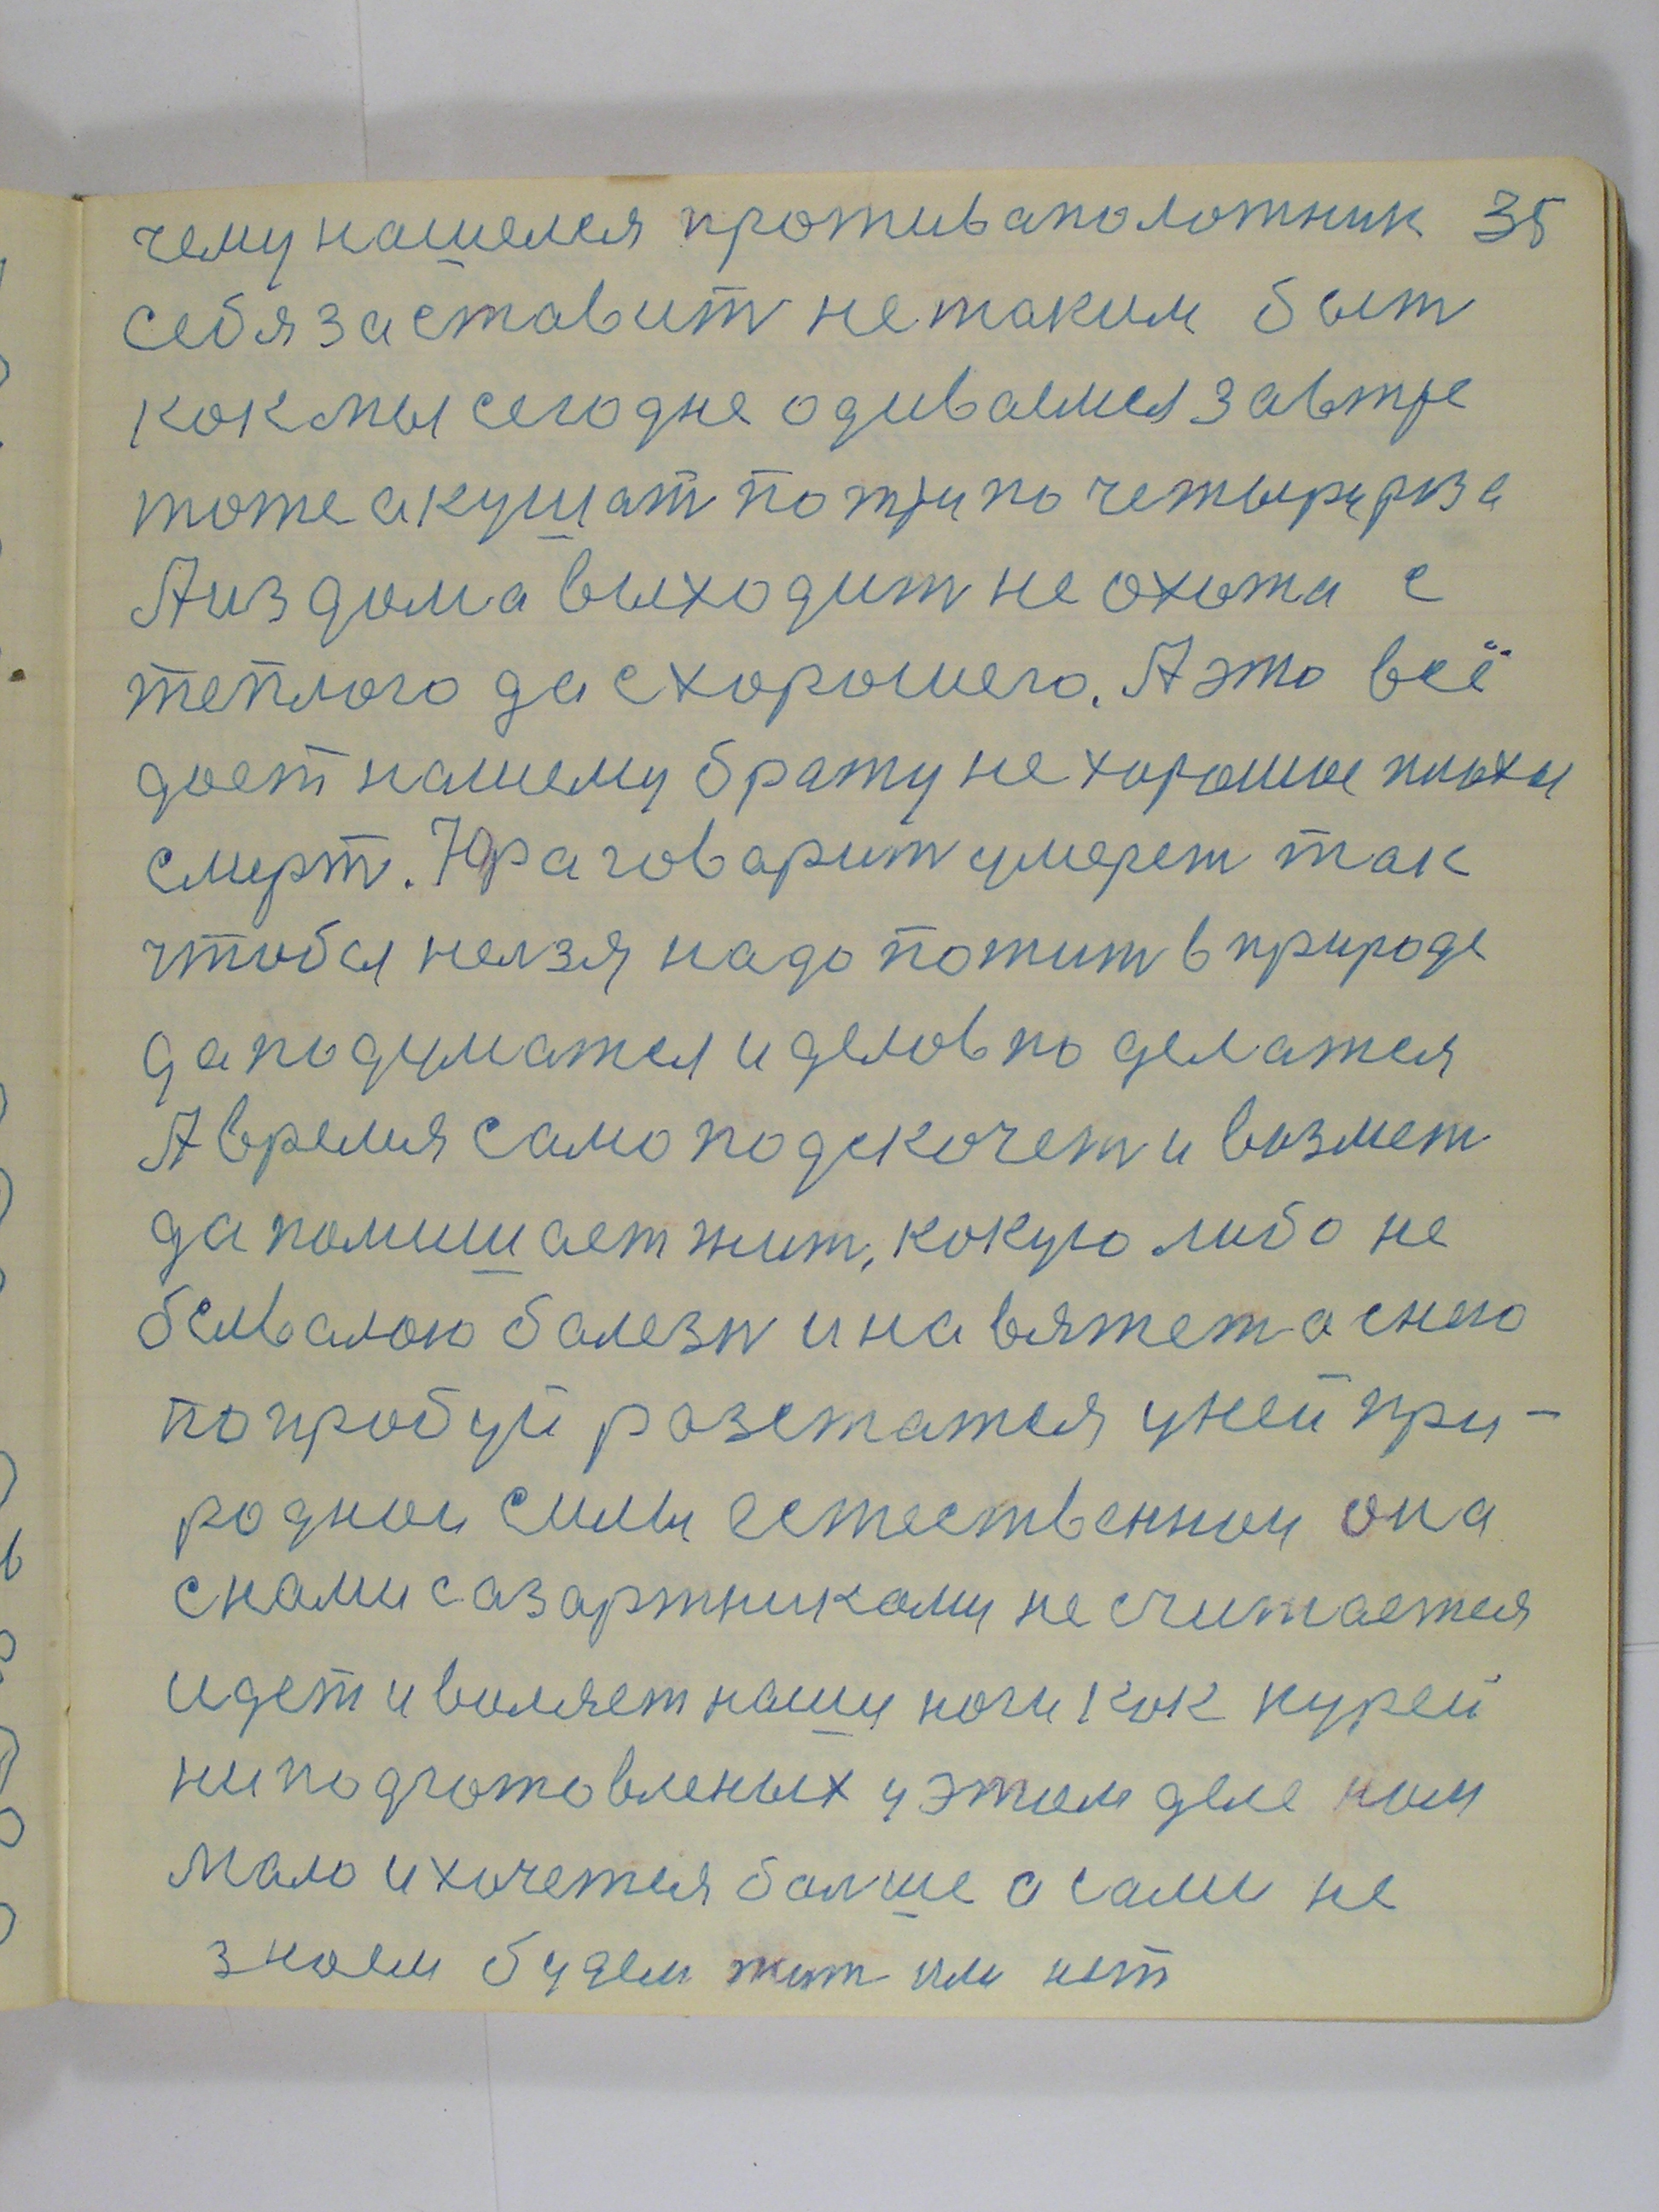 чему нашелся противаположник 35
себя заставит не таким быт
кок мы сегодне одиваемся завтре
тоже а кушат по три по четыри раза
А из дома выходит не охота с
теплого да с хорошего. А это всё
дает нашему брату не хорошое плохое
смерт. Юра говарит умерет так
чтобы нелзя надо пожит в природе
да подуматся и делов по делатся
А время само подскочет и возмет
да помишает жит, кокую либо не
бывалою болезн и навяжет а с нею
попробуй розстатся у ней при-
родной силы естественной она
с нами с азартниками не считается
идет и воляет наши ноги кок курей
ни подготовленых у этом деле ном
мало и хочется болше а сами не
зноем будем жит или нет